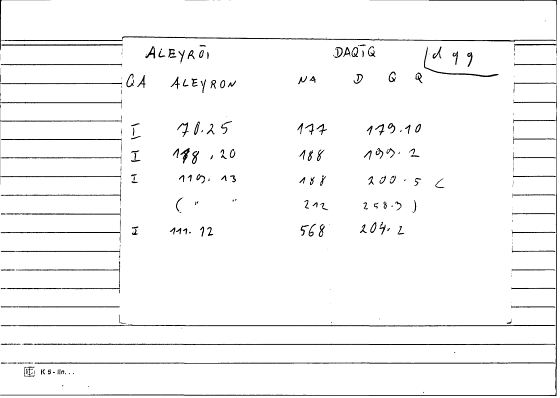 ALEYRŌI DAQĪQ d q q
QA ALEYRON NA D Q Q
I 70.25 177 179.10
I 118.20 188 199.2
I 119.13 188 200.5 (
( " " 212 258.9 )
I 111.12 568 204.2
K 5 - lin...